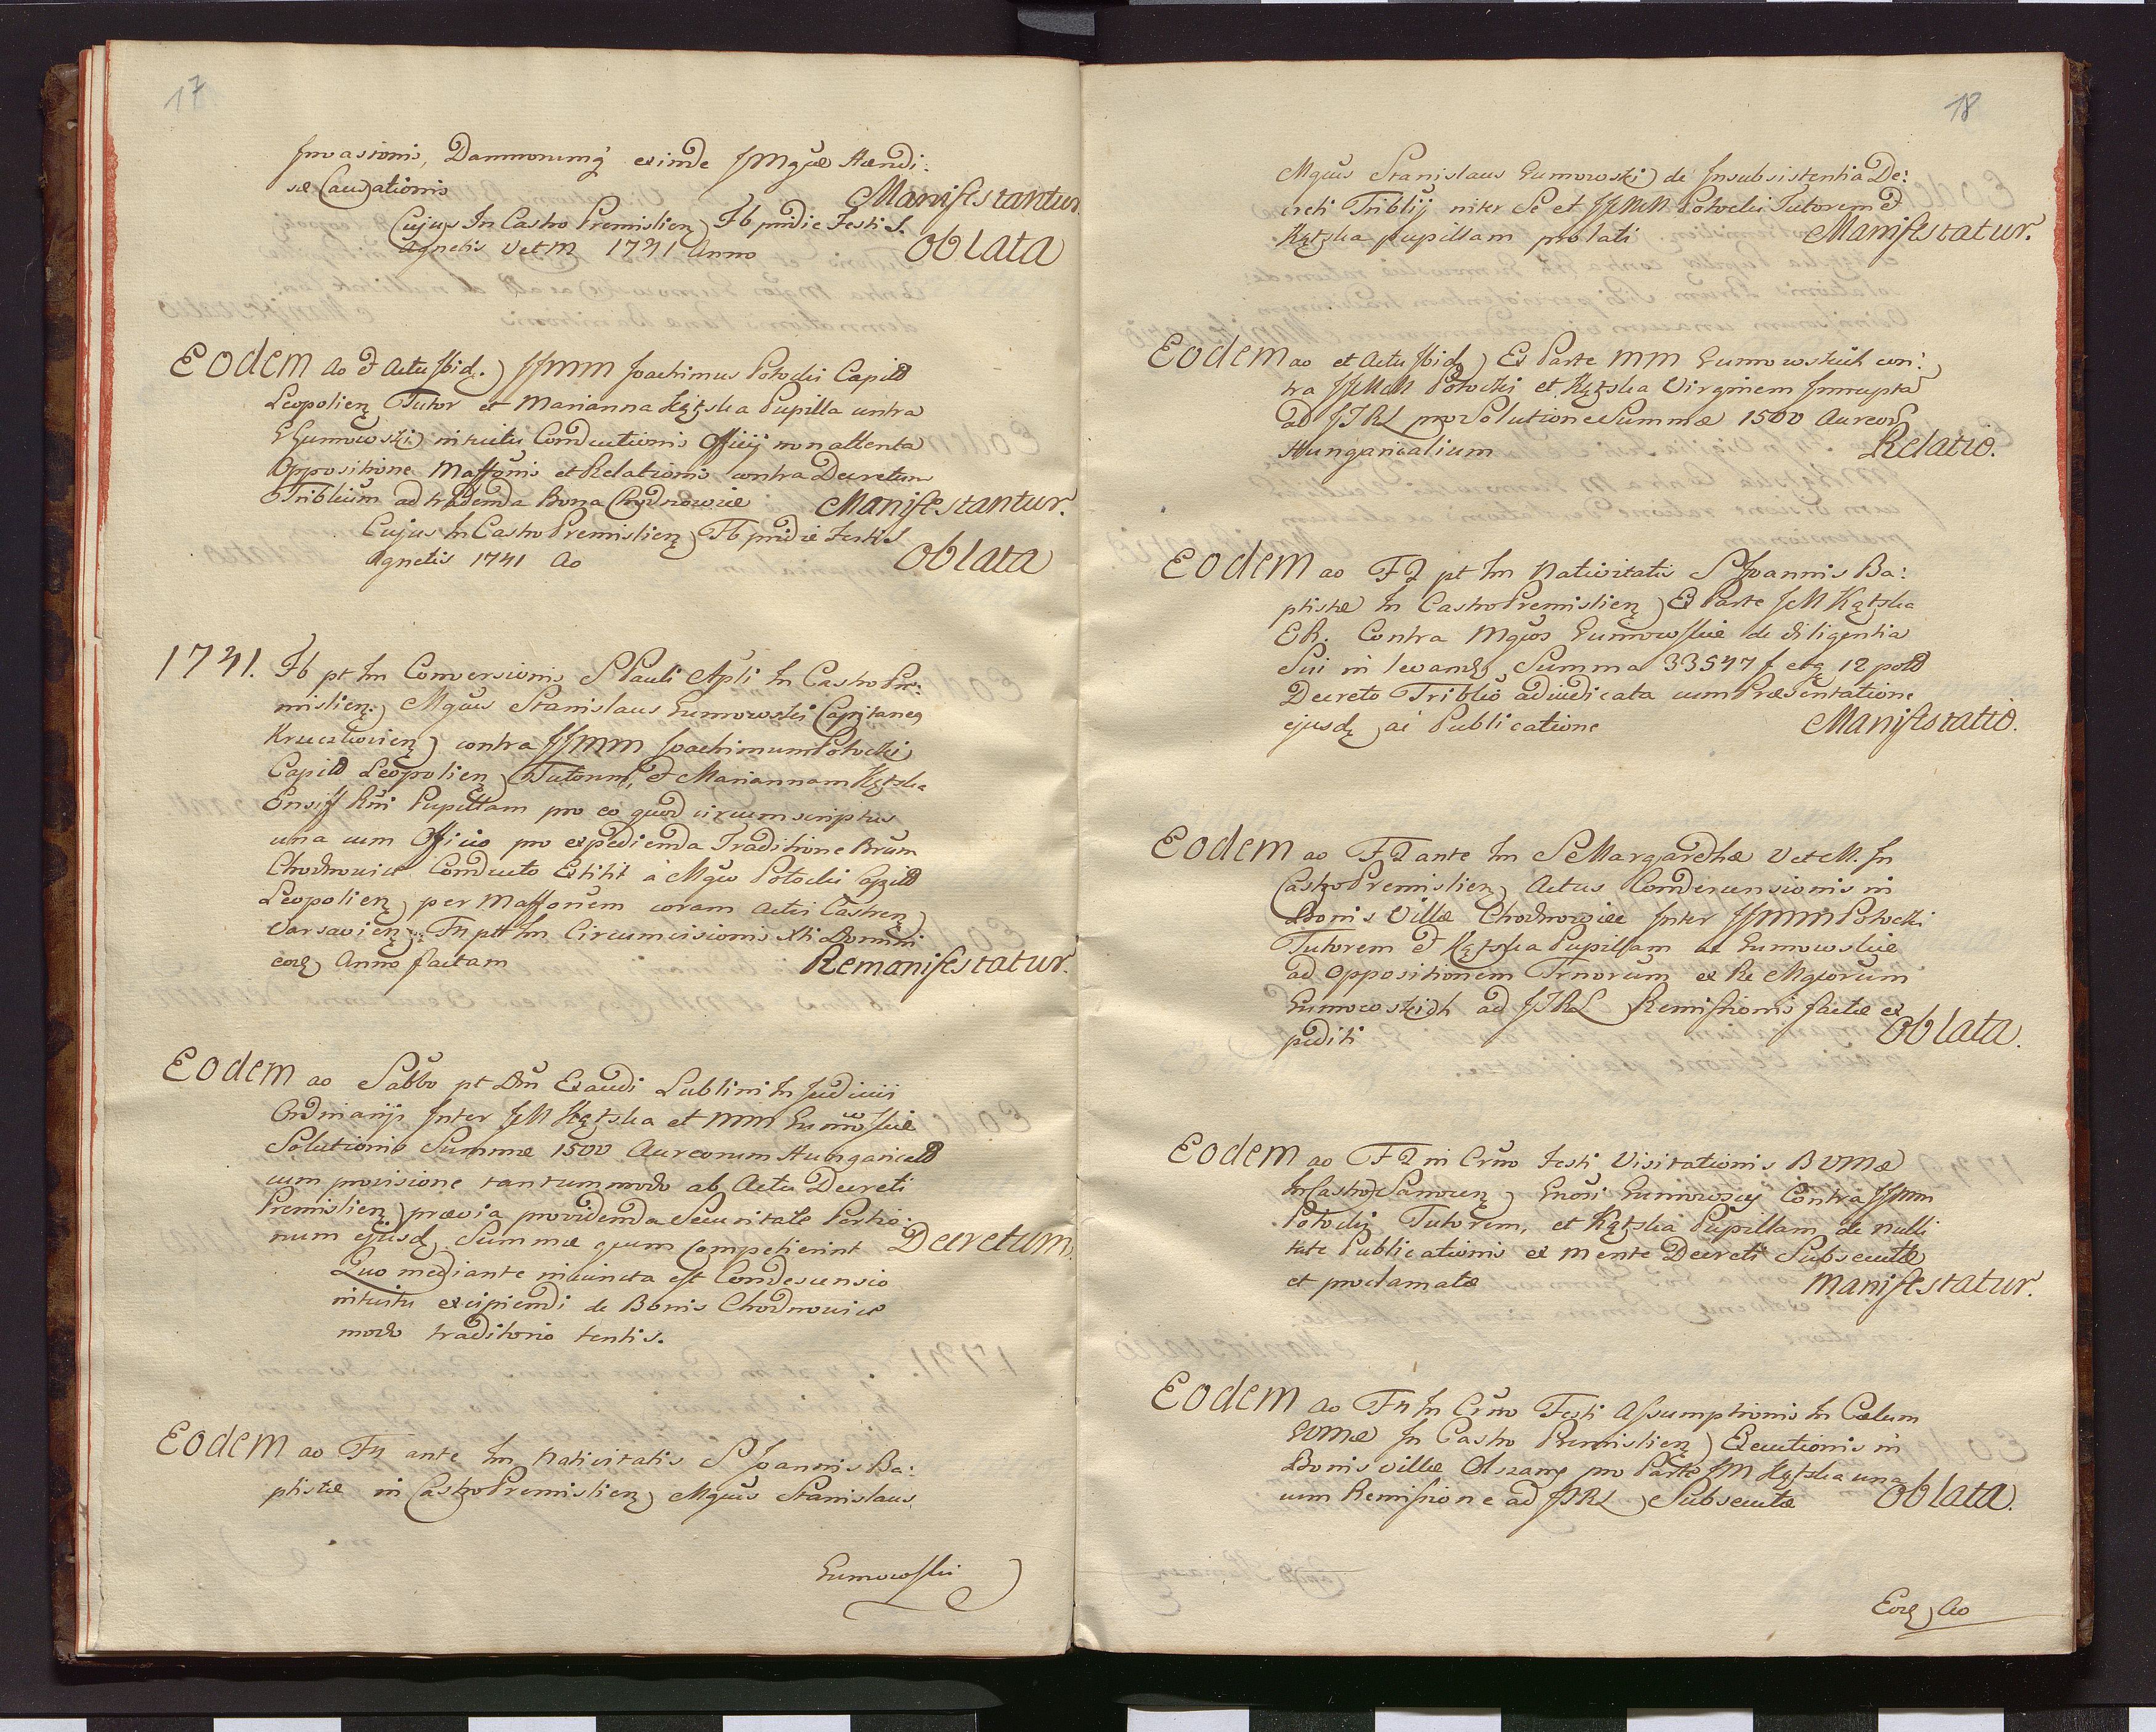 17
Invasionis, Damnorumq̃ exinde JMgũæ Hændi:
sæ Causationis Manifestantur.
Cujus In Castro Premislienꝫ Fb pridie Festi S.
Agnetis VetM 1741 Anno Oblata
Eodem Ao & Actu Ibidꝫ. JJMM Joachimus Potocki Capitts
Leopolienꝫ Tutor et Marianna Kątska Pupilla contra
Gumowski intuitu Conductionis Officij non attenta
Oppositione Maffonis et Relationis contra Decretum
Triblium ad tradenda Bona Chodnowice Manifestantur.
Cujus In Castro Premislienꝫ Fb pridie Festi S
Agnetis 1741 Ao Oblata
1741. Fb pt Im Conversionis S Pauli Apli In Castro Pre:
mislienꝫ Mgũus Stanislaus Gumowski Capitaneꝯ
Kruczkovienꝫ contra JJMM Joachimum Potocki
Capitts Leopolienꝫ Tutorem, & Mariannam Kątska
Ensiff Rñi Pupillam pro eo quod circumscriptus
una cum Officio pro expedienda Traditione Bnrum
Chodnowice Conducto Extitit à Mgũo Potocki Capitts
Leopolienꝫ per Maffonem coram Actis Castrenꝫ
Varsavienꝫ F4 ptt Im Circumcisionis Xti Domini
eodꝫ Anno factam Remanifestatur.
Eodem ao Sabbo pt Dm Exaudi Lublini In Judiciis
Ordinarijs Inter JM Kątska et MM Gumowskie
Solutionis Summæ 1500 Aureorum Hungaricalts
cum provisione tantummodo ab Actu Decreti
Premislienꝫ prævia providenda Securitate Portio:
num ejusdꝫ Summæ quum competierint Decretum.
Quo mediante injuncta est Condescensio
intuitu excipiendi de Bonis Chodnowice
modo traditorio tentis.
Eodem ao F4 ante Im Nativitatis S Joannis Ba:
ptistæ in Castro Premislienꝫ Mgũus Stanislaus
Gumowski
18
Mgũus Stanislaus Gumowski de Insubsistentia De:
creti Triblij inter Se et JJMM Potocki Tutorem &
Kątska pupillam prolati Manifestatur.
Eodem ao et Actu Ibidꝫ Ex Parte MM Gumowskich con:
tra JJMM Potocki et Kątska Virginem Innupta
ad JTRL pro Solutione Summæ 1500 Aureor
Hungaricalium Relatio.
Eodem ao F2 pt Im Nativitatis S Joannis Ba:
ptistæ In Castro Premislienꝫ Ex Parte JM Kątska
ER. Contra Mgũos Gumowskie de diligentia
Sui in levandꝫ Summa 33547 f etg 12 polt
Decreto Triblio adjudicata cum Præsentatione
ejusdꝫ ac Publicatione Manifestatio.
Eodem ao F2 ante Im S Margarethæ VetM. In
Castro Premislienꝫ Actus Condescensionis in
Bonis Villæ Chodnowice Inter JJMM Potocki
Tutorem & Kątska Pupillam ac Gumowskie
ad Oppositionem Trnorum ex Re Mgũorum
Gumowskich ad JTRL Remissionis factæ ex
pediti Oblata.
Eodem ao F2 in Crũo Festi Visitationis BVMæ
In Castro Sanocenꝫ Grosi Gumowscy Contra JJMM
Potockj Tutorem, et Kątska Pupillam de nulli
tate Publicationis ex mente Decreti Subsecutæ
et proclamatæ Manifestatur.
Eodem ao F4 In Crũo Festi Assumptionis In Cælum
BVMæ In Castro Premislienꝫ Executionis in
Bonis villæ Olszany pro Parte JM Kątska una
cum Remissione ad JTRL Subsecutæ Oblata.
Eodꝫ Ao